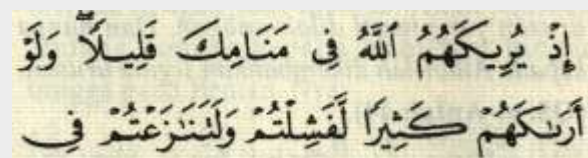 إِذْ يُرِيكَهُمُ ٱللَّهُ فِى مَنَامِكَ قَلِيلًاۖ وَلَوْ
أَرَىٰكَهُمْ كَثِيرًا لَّفَشِلْتُمْ وَلَتَنَٰزَعْتُمْ فِى